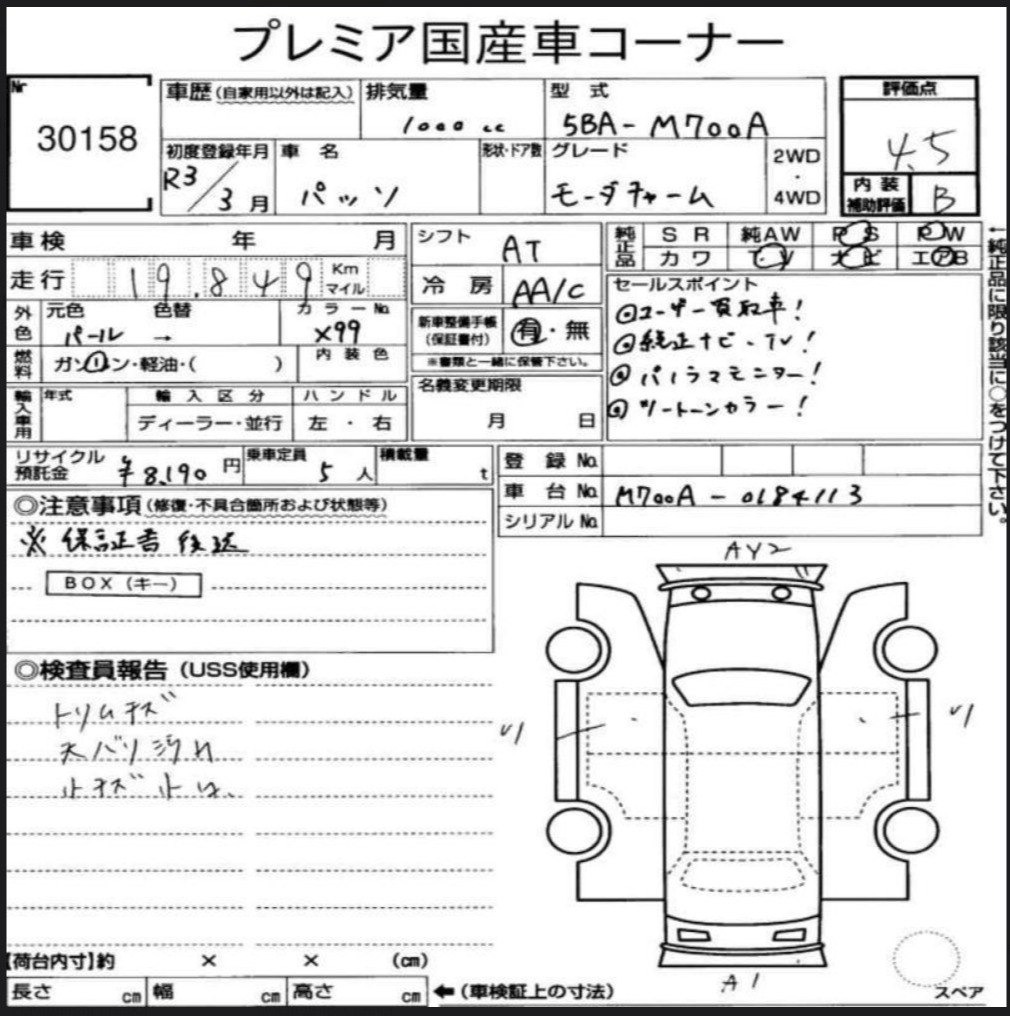 プレミア国産車コーナー
Nr
30158
車歴(自家用以外は記入)
排気量
1000 cc
型式
5BA-M700A
評価点
4.5
内装補助評価
B
初度登録年月
R3/3月
車名
パッソ
形状・ドア数
グレード
モーダチャーム
2WD・4WD
車検 年 月
走行 19.849 Km マイル
シフト
AT
冷房
AA/C
純正品
SR 純AW PS PW
カワ T・V ナビ エアB
←純正品に限り該当に○をつけて下さい。
外色
元色
パール
色替
→
カラーNo.
X99
燃料
ガソリン・軽油・( )
内装色
新車整備手帳(保証書付)
有・無
※書類と一緒に保管下さい。
セールスポイント
◎ユーザー買取車!
◎純正ナビ・TV!
◎パノラマモニター!
◎ツートーンカラー!
輸入車用
年式
輸入区分
ディーラー・並行
ハンドル
左・右
名義変更期限
月 日
リサイクル預託金
¥8,190円
乗車定員
5人
積載量
t
登録No.
車台No.
M700A-0184113
シリアルNo.
◎注意事項(修復・不具合箇所および状態等)
※保証書後送
BOX(キー)
◎検査員報告(USS使用欄)
トリムキズ
天バリ汚れ
AY2
A1
【荷台内寸】約 × × (cm)
長さ cm 幅 cm 高さ cm
←(車検証上の寸法)
スペア